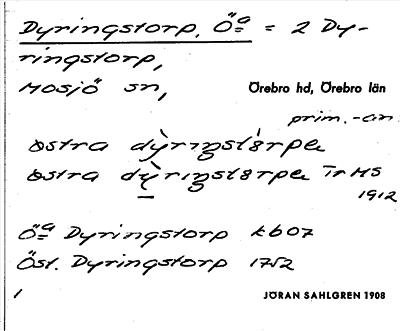 Dyringstorp, Öa = 2 Dy-
ringstorp,
Mosjö sn, Örebro hd, Örebro län
prim.-an.
östra dỳriŋstòrpa
östra dỳriŋstörpa Tr MS
1912
Öa Dyringstorp kb07
Öst. Dyringstorp 1752
1 JÖRAN SAHLGREN 1908